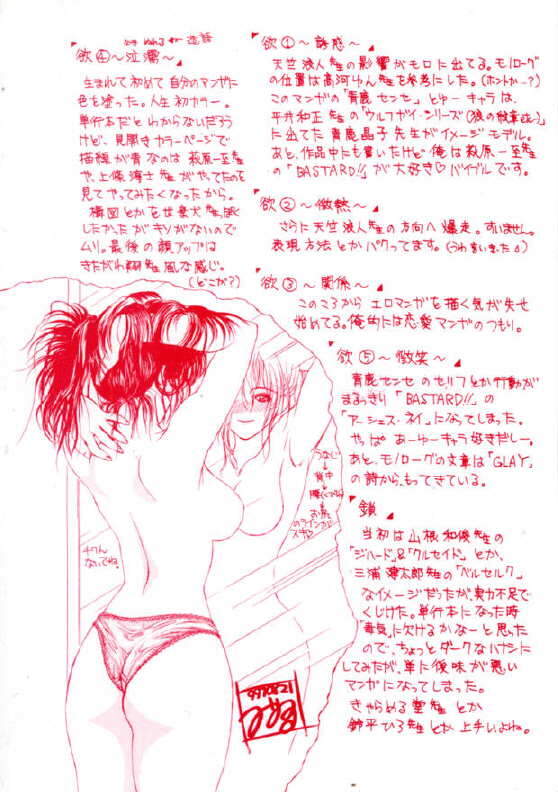 欲①〜誘惑〜
天竺浪人先生の影響がモロに出てる。モノローグ
の位置は高河ゆん先生を参考にした。(ホントかー?)
このマンガの「青鹿センセ」とゆー キャラは、
平井和正 先生の「ウルフガイ・シリーズ」
に出てた 青鹿晶子 先生がイメージ モデル。
あと、作品中にも書いたけど 俺は萩原一至先生
の「BASTARD!!」が大好き♡バイブルです。
欲②〜微熱〜
さらに天竺浪人先生の方向へ 爆走。すいません。
表現方法とかパクってます。
欲③〜関係〜
このころから エロマンガを描く気が失せ
始めてる。俺的には恋愛マンガのつもり。
欲④〜泣濡〜
生まれて初めて 自分のマンガに
色を塗った。人生初カラー。
単行本だと わからないだろう
けど、見開きカラーページで
描線が青なのは 萩原一至先生
や、上條淳士 先生 がやってたのを
見て やってみたくなったから。
構図とかを
したかったが キリがないので
ムリ。最後の顔アップは
きたがわ翔先生 風な感じ。
(どこが?)
欲⑤〜微笑〜
青鹿センセ のセリフとか行動が
まるっきり「BASTARD!!」の
「アーシェス・ネイ」になってしまった。
やっぱ あーゆーキャラ好きだしー。
あと、モノローグの文章は「GLAY」
の詩から、もってきている。
鎖
当初は山根和俊先生の
「ジハード」&「クルセイド」とか、
三浦建太郎先生の「ベルセルク」
なイメージだったが、実力不足で
くじけた。単行本になった時
「毒気」に欠けるかなーと思った
ので、ちょっとダークなハナシに
してみたが、単に後味が悪い
マンガになってしまった。
きゃらめる堂先生 とか
鈴平ひろ先生とか 上手いよね。
うなじ
↓
背中
↓
腰(くびれ)
↓
お尻
のラインが
スキ♡
チクん
ないでね。